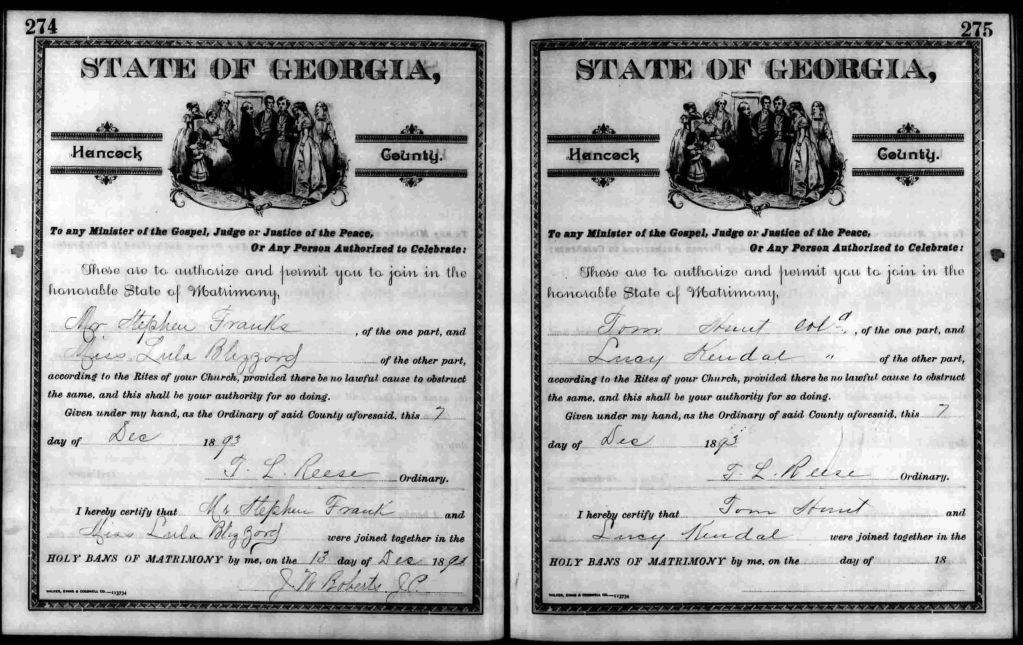 274
STATE OF GEORGIA,
Hancock County.
To any Minister of the Gospel, Judge or Justice of the Peace,
Or Any Person Authorized to Celebrate:
These are to authorize and permit you to join in the
honorable State of Matrimony,
Mr Stephen Franks, of the one part, and
Miss Lula Blizzord of the other part,
according to the Rites of your Church, provided there be no lawful cause to obstruct
the same, and this shall be your authority for so doing.
Given under my hand, as the Ordinary of said County aforesaid, this 7
day of Dec 1893
T. L. Reese Ordinary.
I hereby certify that Mr Stephen Frank and
Miss Lula Blizzord were joined together in the
HOLY BANS OF MATRIMONY by me, on the 13 day of Dec 189
J. W. Roberts J.P.
WALKER, EVANS & COGSWELL CO.—113734
275
STATE OF GEORGIA,
Hancock County.
To any Minister of the Gospel, Judge or Justice of the Peace,
Or Any Person Authorized to Celebrate:
These are to authorize and permit you to join in the
honorable State of Matrimony,
Tom Hunt Cold, of the one part, and
Lucy Kendal " of the other part,
according to the Rites of your Church, provided there be no lawful cause to obstruct
the same, and this shall be your authority for so doing.
Given under my hand, as the Ordinary of said County aforesaid, this 7
day of Dec 1893
T. L. Reese Ordinary.
I hereby certify that Tom Hunt and
Lucy Kendal were joined together in the
HOLY BANS OF MATRIMONY by me, on the day of 18
WALKER, EVANS & COGSWELL CO.—113734